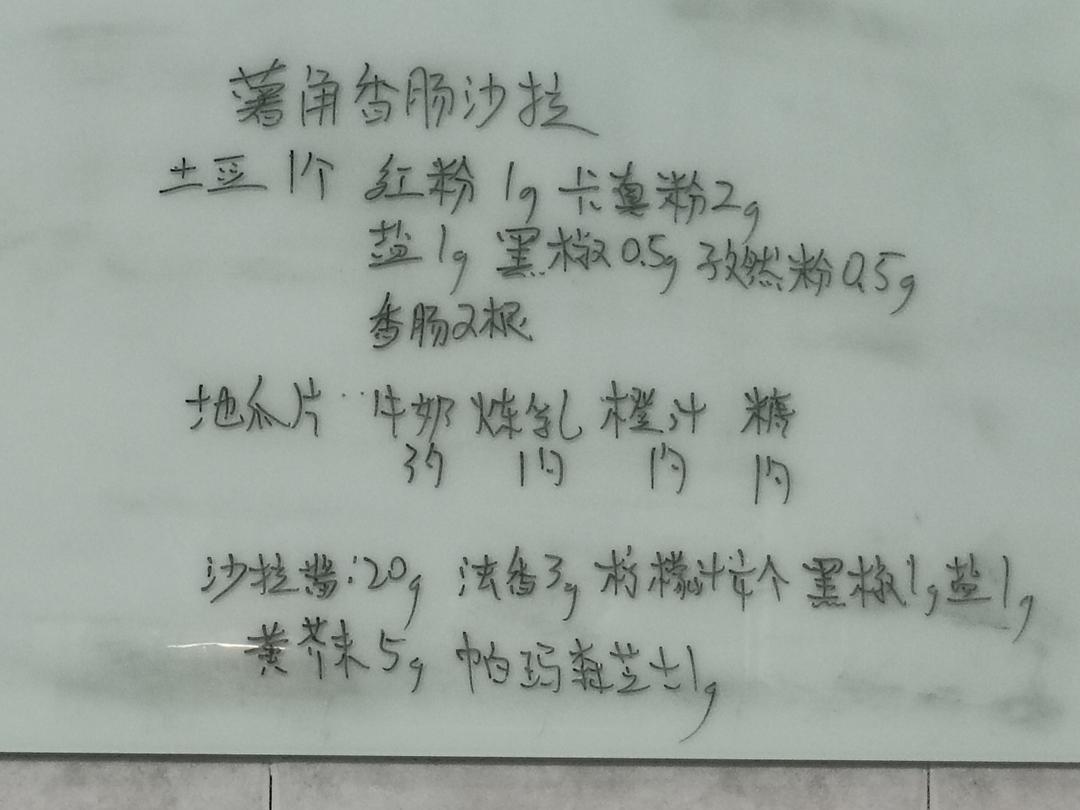 薯角香肠沙拉
土豆 1个 红粉 1g 卡真粉2g
盐1g 黑椒0.5g 孜然粉0.5g
香肠2根
地瓜片 牛奶 炼乳 橙汁 糖
3勺 1勺 1勺 1勺
沙拉酱:20g 法香3g 柠檬汁 个 黑椒1g 盐1g
黄芥末5g 帕玛森芝士1g